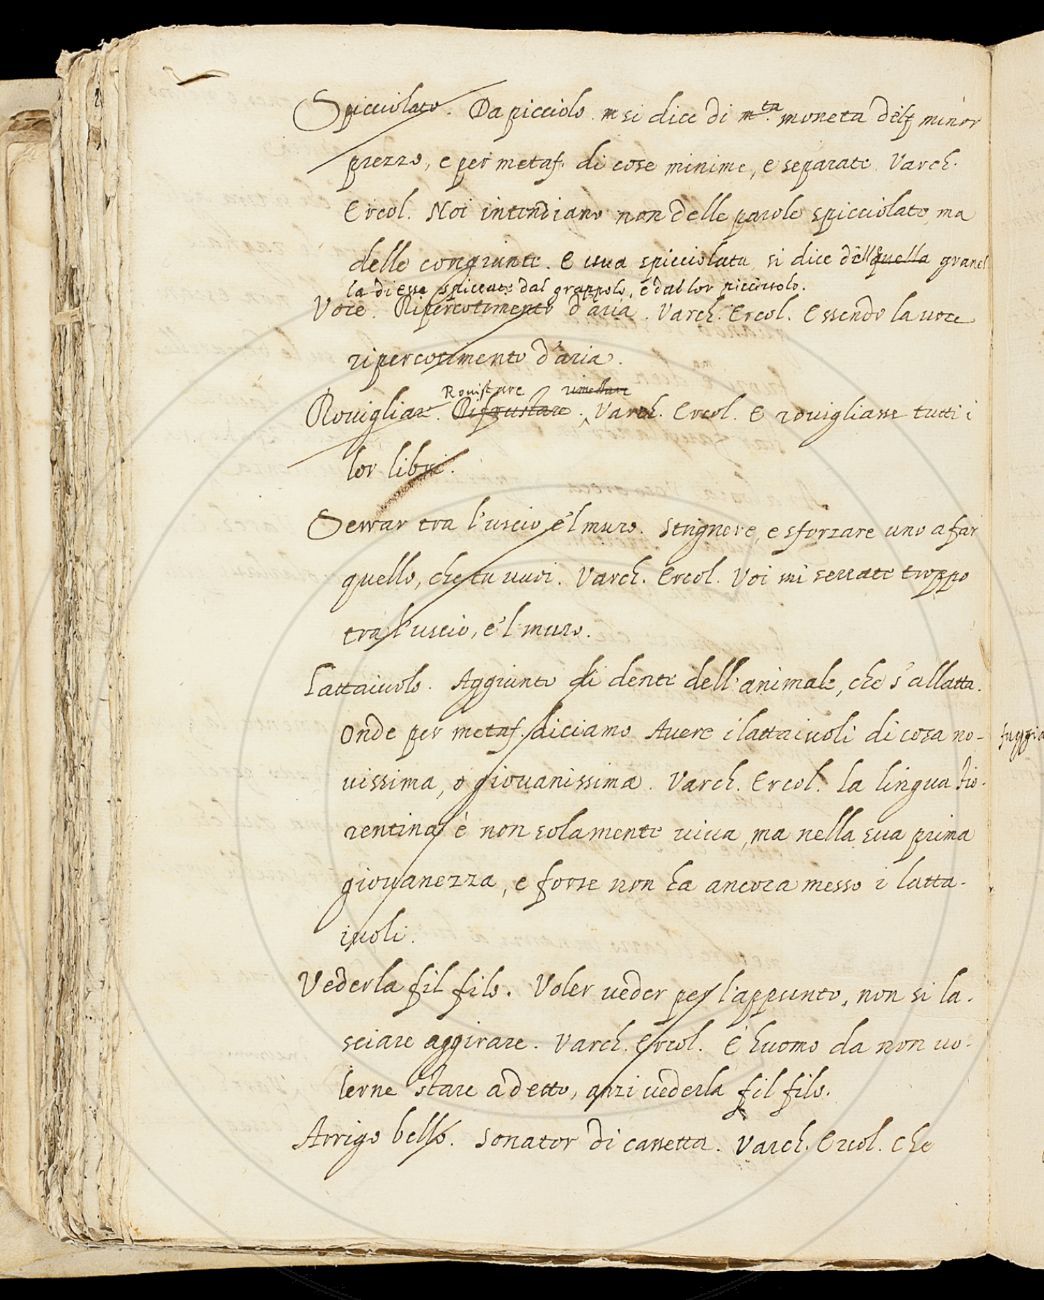 Spicciolato. Da picciolo. si dice di m.ta moneta del minor
prezzo, e per metaf. di cose minime, e separate. Varch.
Ercol. Noi intendiano non delle parole spicciolate, ma
delle congiunte. E uva spicciolata si dice dell quella granel
la di essa spiccate dal grappolo, e dal lor picciuolo.
Voce. Ripercotimento d'aria. Varch. Ercol. Essendo la voce
ripercotimento d'aria.
Rovistare rimestare
Rovigliar. Rifrustare. Varch. Ercol. E rovigliasse tutti i
lor libri.
Serrar tra l'uscio, e'l muro. Strignere, e sforzare uno a far
quello, che tu vuoi. Varch. Ercol. Voi mi serrate troppo
tra l'uscio, e'l muro.
Lattaiuolo. Aggiunto di dente dell'animale, che s'allatta.
Onde per metaf. diciamo Avere i lattaiuoli di cosa no-
vissima, o giovanissima. Varch. Ercol. la lingua Fio-
rentina è non solamente viva, ma nella sua prima
giovanezza, e forse non ha ancora messo i latta-
iuoli.
Vederla fil filo. Voler veder per l'appunto, non si la-
sciare aggirare. Varch. Ercol. È huomo da non vo-
lerne stare a detto, anzi vederla fil filo.
Arrigo bello. Sonator di cassetta. Varch. Ercol. che